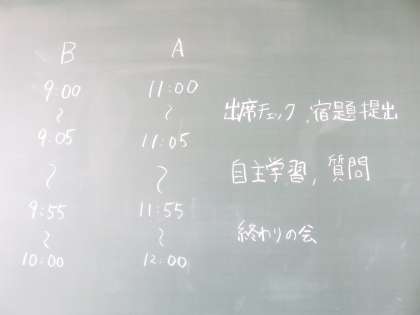 B A
9:00 11:00
〜 〜 出席チェック、宿題提出
9:05 11:05
〜 〜 自主学習, 質問
9:55 11:55
〜 〜 終わりの会
10:00 12:00